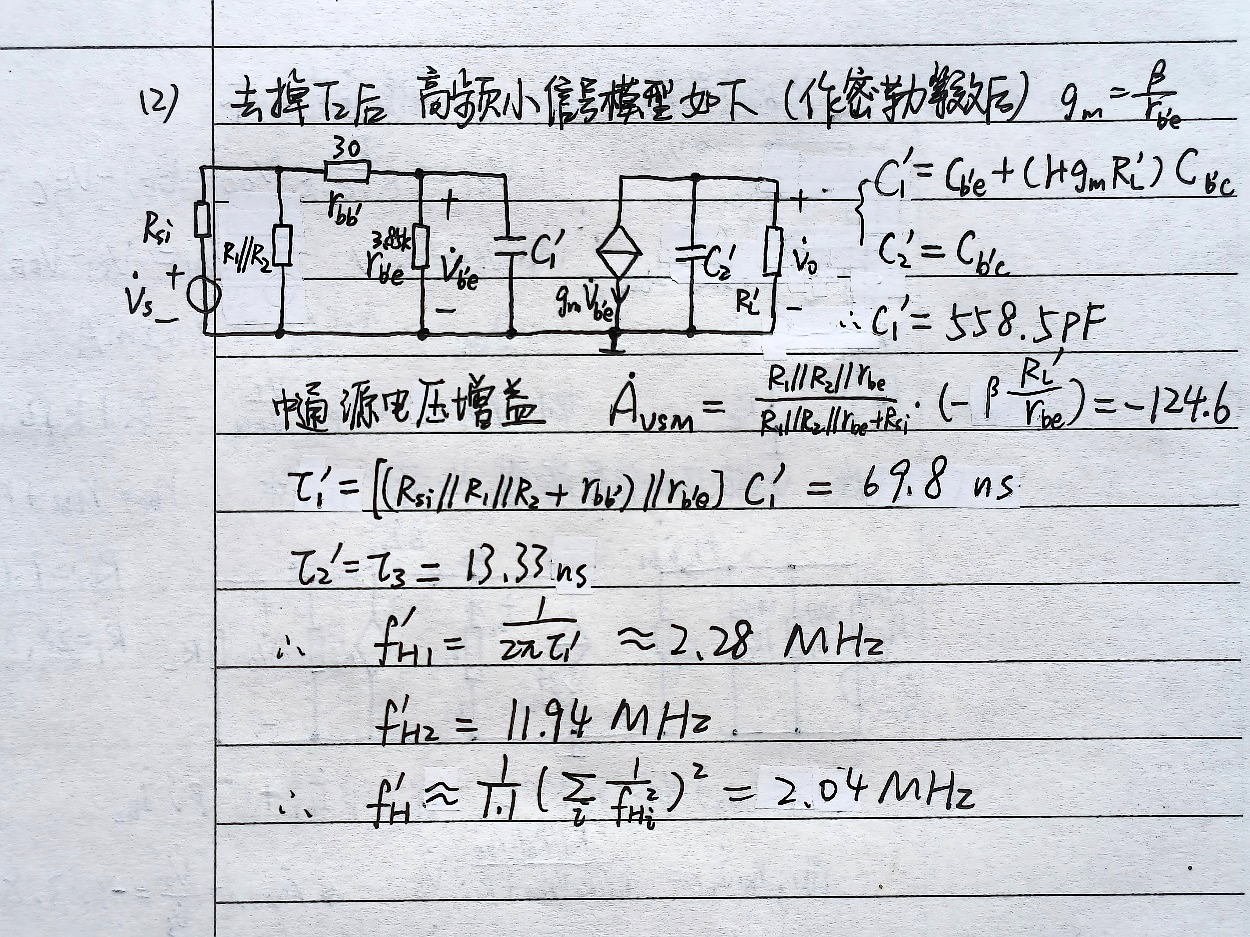 (2) 去掉T₂后 高频小信号模型如下 (作密勒等效后) gₘ = β/r_b'e
30
C₁' = C_b'e + (1+gₘR_L') C_b'c
R_si R₁//R₂ r_bb' 3.85k r_b'e + V̇_b'e − C₁' gₘV̇_b'e C₂' R_L' + V̇₀ −
C₂' = C_b'c
V̇s + −
∴ C₁' = 558.5pF
中通源电压增益 Ȧ_VSM = (R₁//R₂//r_be)/(R₁//R₂//r_be+R_si) · (−β R_L'/r_be) = −124.6
τ₁' = [(R_si//R₁//R₂ + r_bb')//r_b'e] C₁' = 69.8 ns
τ₂' = τ₃ = 13.33 ns
∴ f'_H1 = 1/(2πτ₁') ≈ 2.28 MHz
f'_H2 = 11.94 MHz.
∴ f'_H ≈ 1/1.1 (∑_i 1/f_Hi²)² = 2.04 MHz